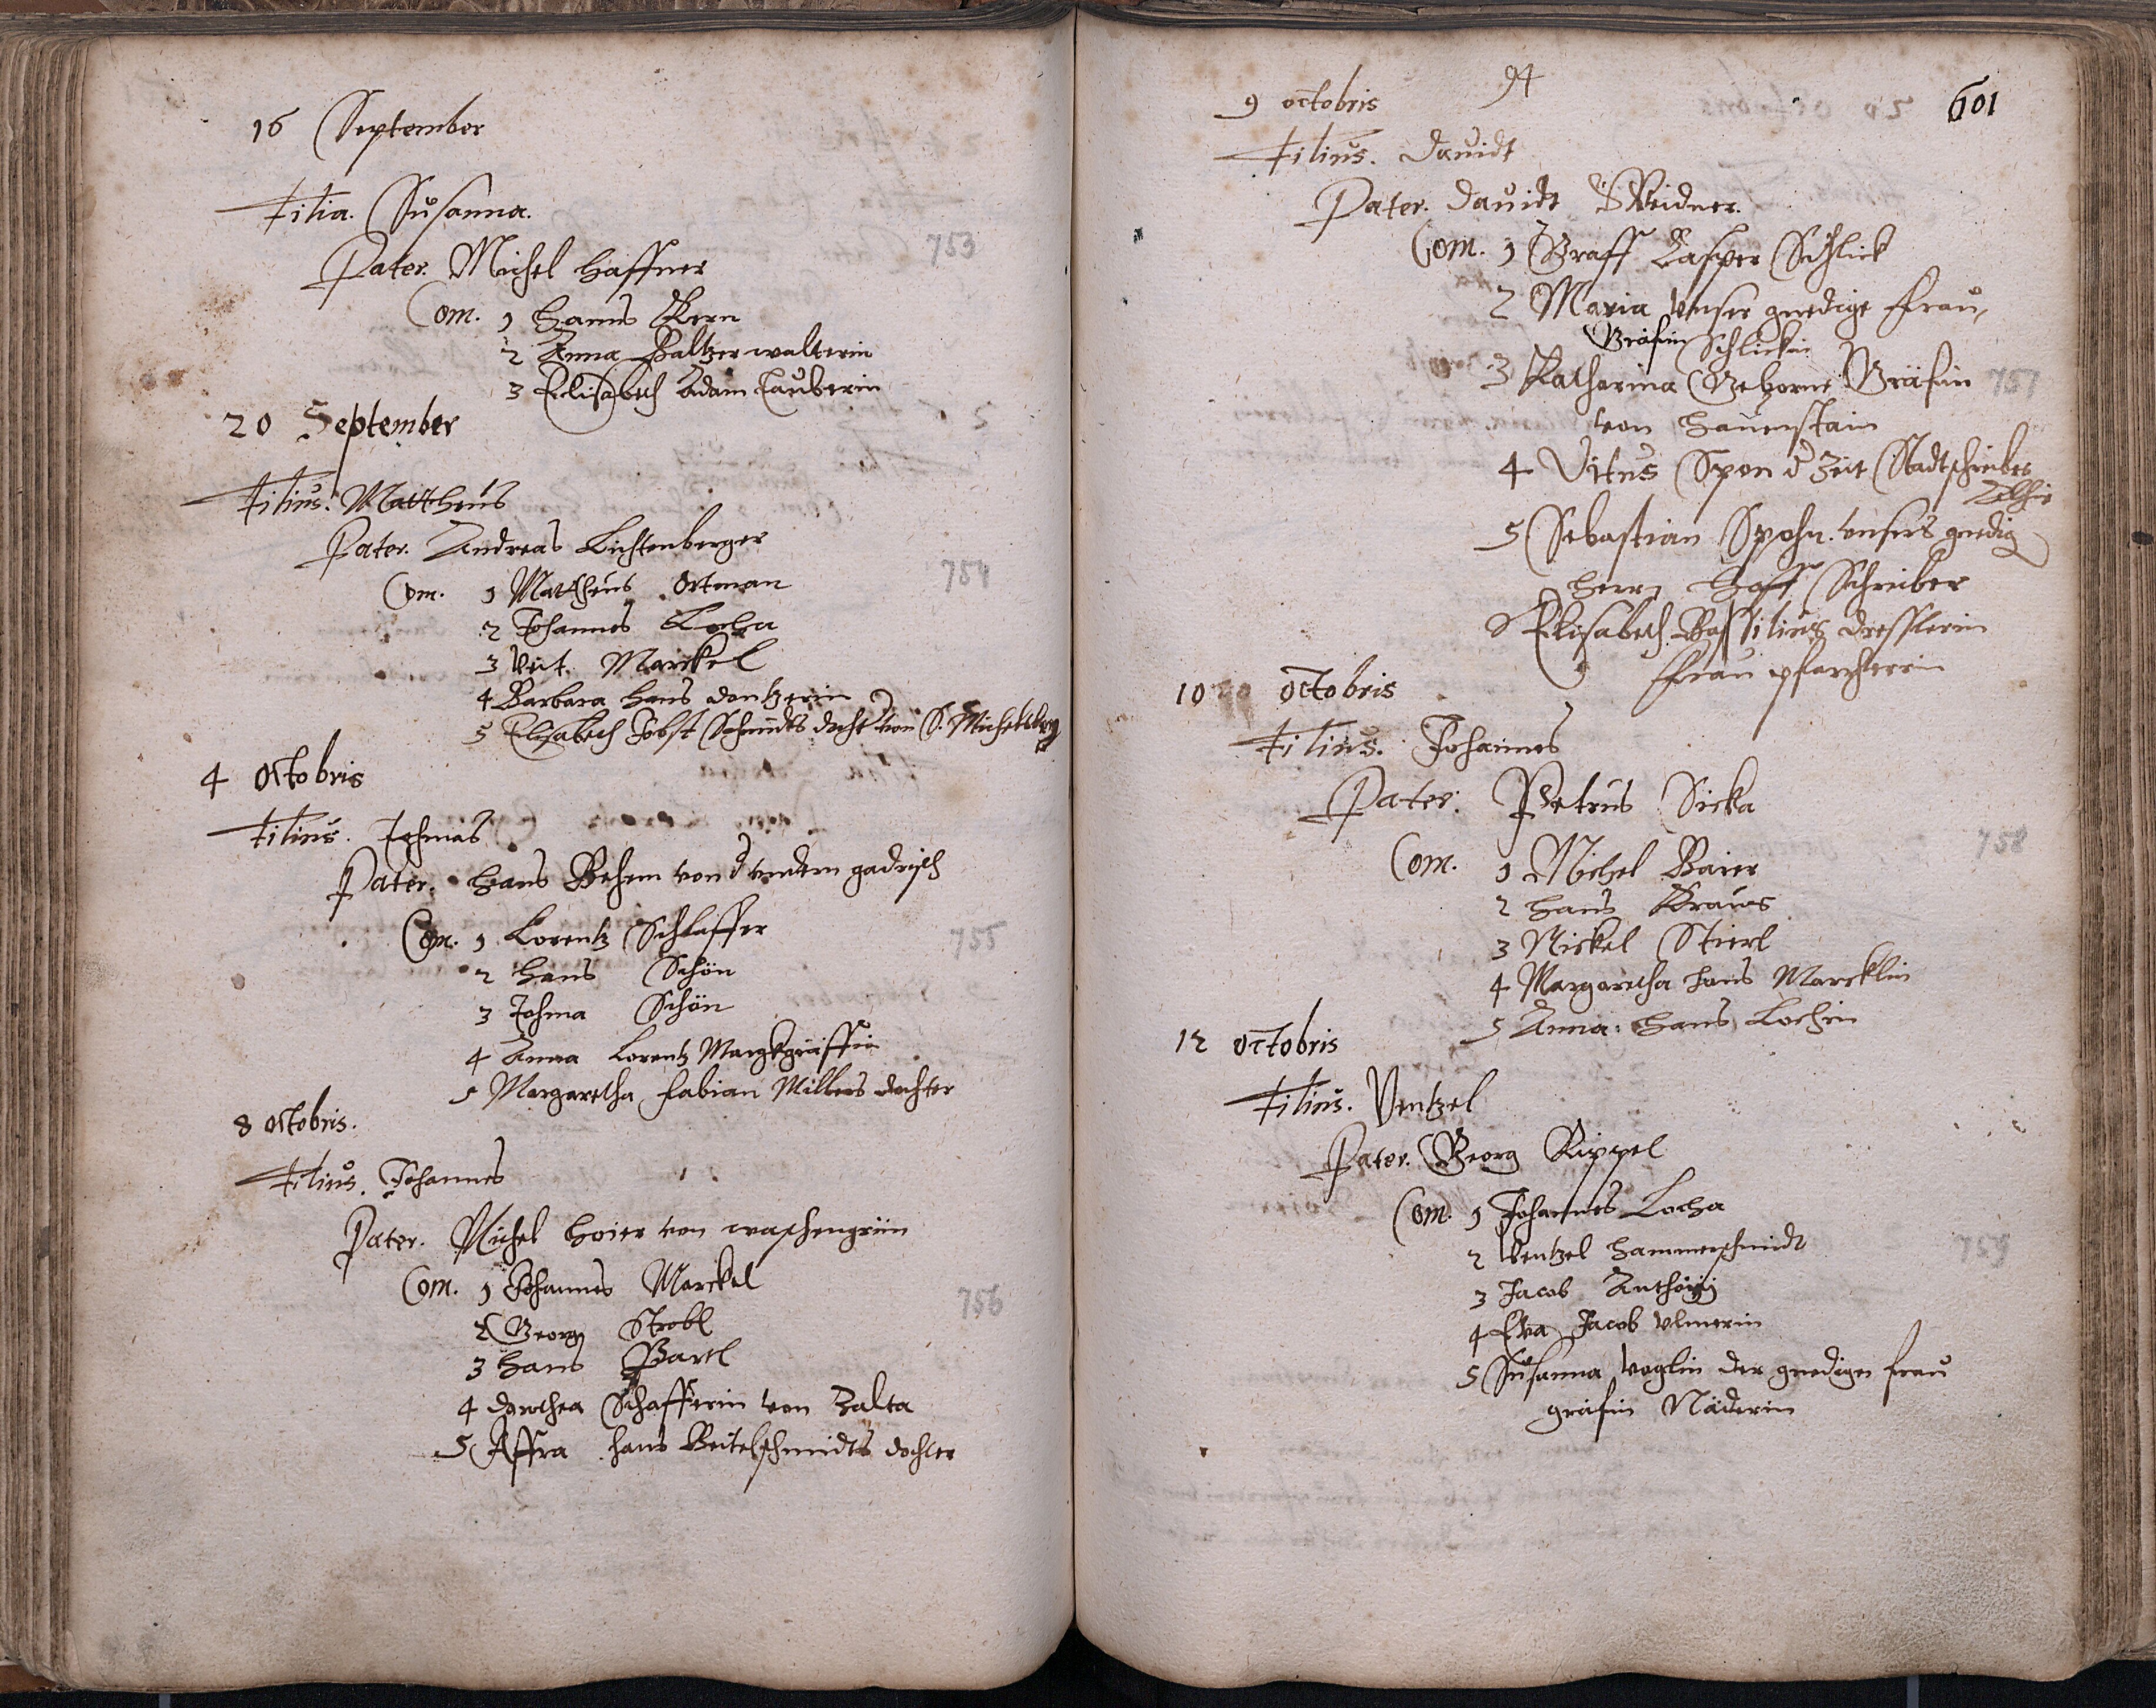 16 September
Filia. Susanna.
753
Pater. Michel Haffner
Com. 1 Hanns Kern
2 Anna Baltzer walterin
3 Elisabeth Adam Tauberin
20 September
Filius. Mattheus
Pater. Andreas Lichtenberger
754
Com. 1 Mattheus Ortman
2 Johannes Locha
3 Veit Marckel
4 Barbara Hans dentzerin
5 Elisabeth Jobst Schmidts docht von S. Michelsberg
4 Octobris
Filius. Tohmas
Pater. Hans Behem von d undern gadrisch
Com. 1 Lorentz Schlaffer
755
2 Hans Schön
3 Tohma Schön
4 Anna Lorentz Marggräffin
5 Margaretha Fabian Millers dochter
8 Octobris.
Filius. Johannes
Pater. Michel Hoier von waschengrün
Com. 1 Johannes Marckel
756
2 Georg Strobl
3 Hans Bartl
4 dorothea Schafferin von Zalta
5 Affra Hans Beitelschmidts dochter
94
601
9 octobris
Filius. Dauidt
Pater. Dauidt Weidner.
Com. 1 Graff Casper Schlick
2 Maria Unser gnedige Frau,
Gräfin Schlickin
3 Katharina Geborne Gräfin
757
von Hauenstain
4 Vitus Spon d Zeit Stadtschreiber
Alhie
5 Sebastian Spohn. unsers gnedig
Herrn Hoff Schreiber
6 Elisabeth Bassilius Dresslerin
Frau pfarherrin
10 octobris
Filius. Johannes
Pater. Petrus Sicka
758
Com. 1 Michel Baier
2 Hans Kraus
3 Nickel Stierl
4 Margaretha Hans Marcklin
5 Anna Hans Lochin
12 octobris
Filius. Ventzel
Pater. Georg Rippel
Com. 1 Johannes Locha
2 Ventzel Hammerschmidt
759
3 Jacob Anthonÿ
4 Eva Jacob Ulmerin
5 Susanna Voglin der gnedigen Frau
gräfin Näderin